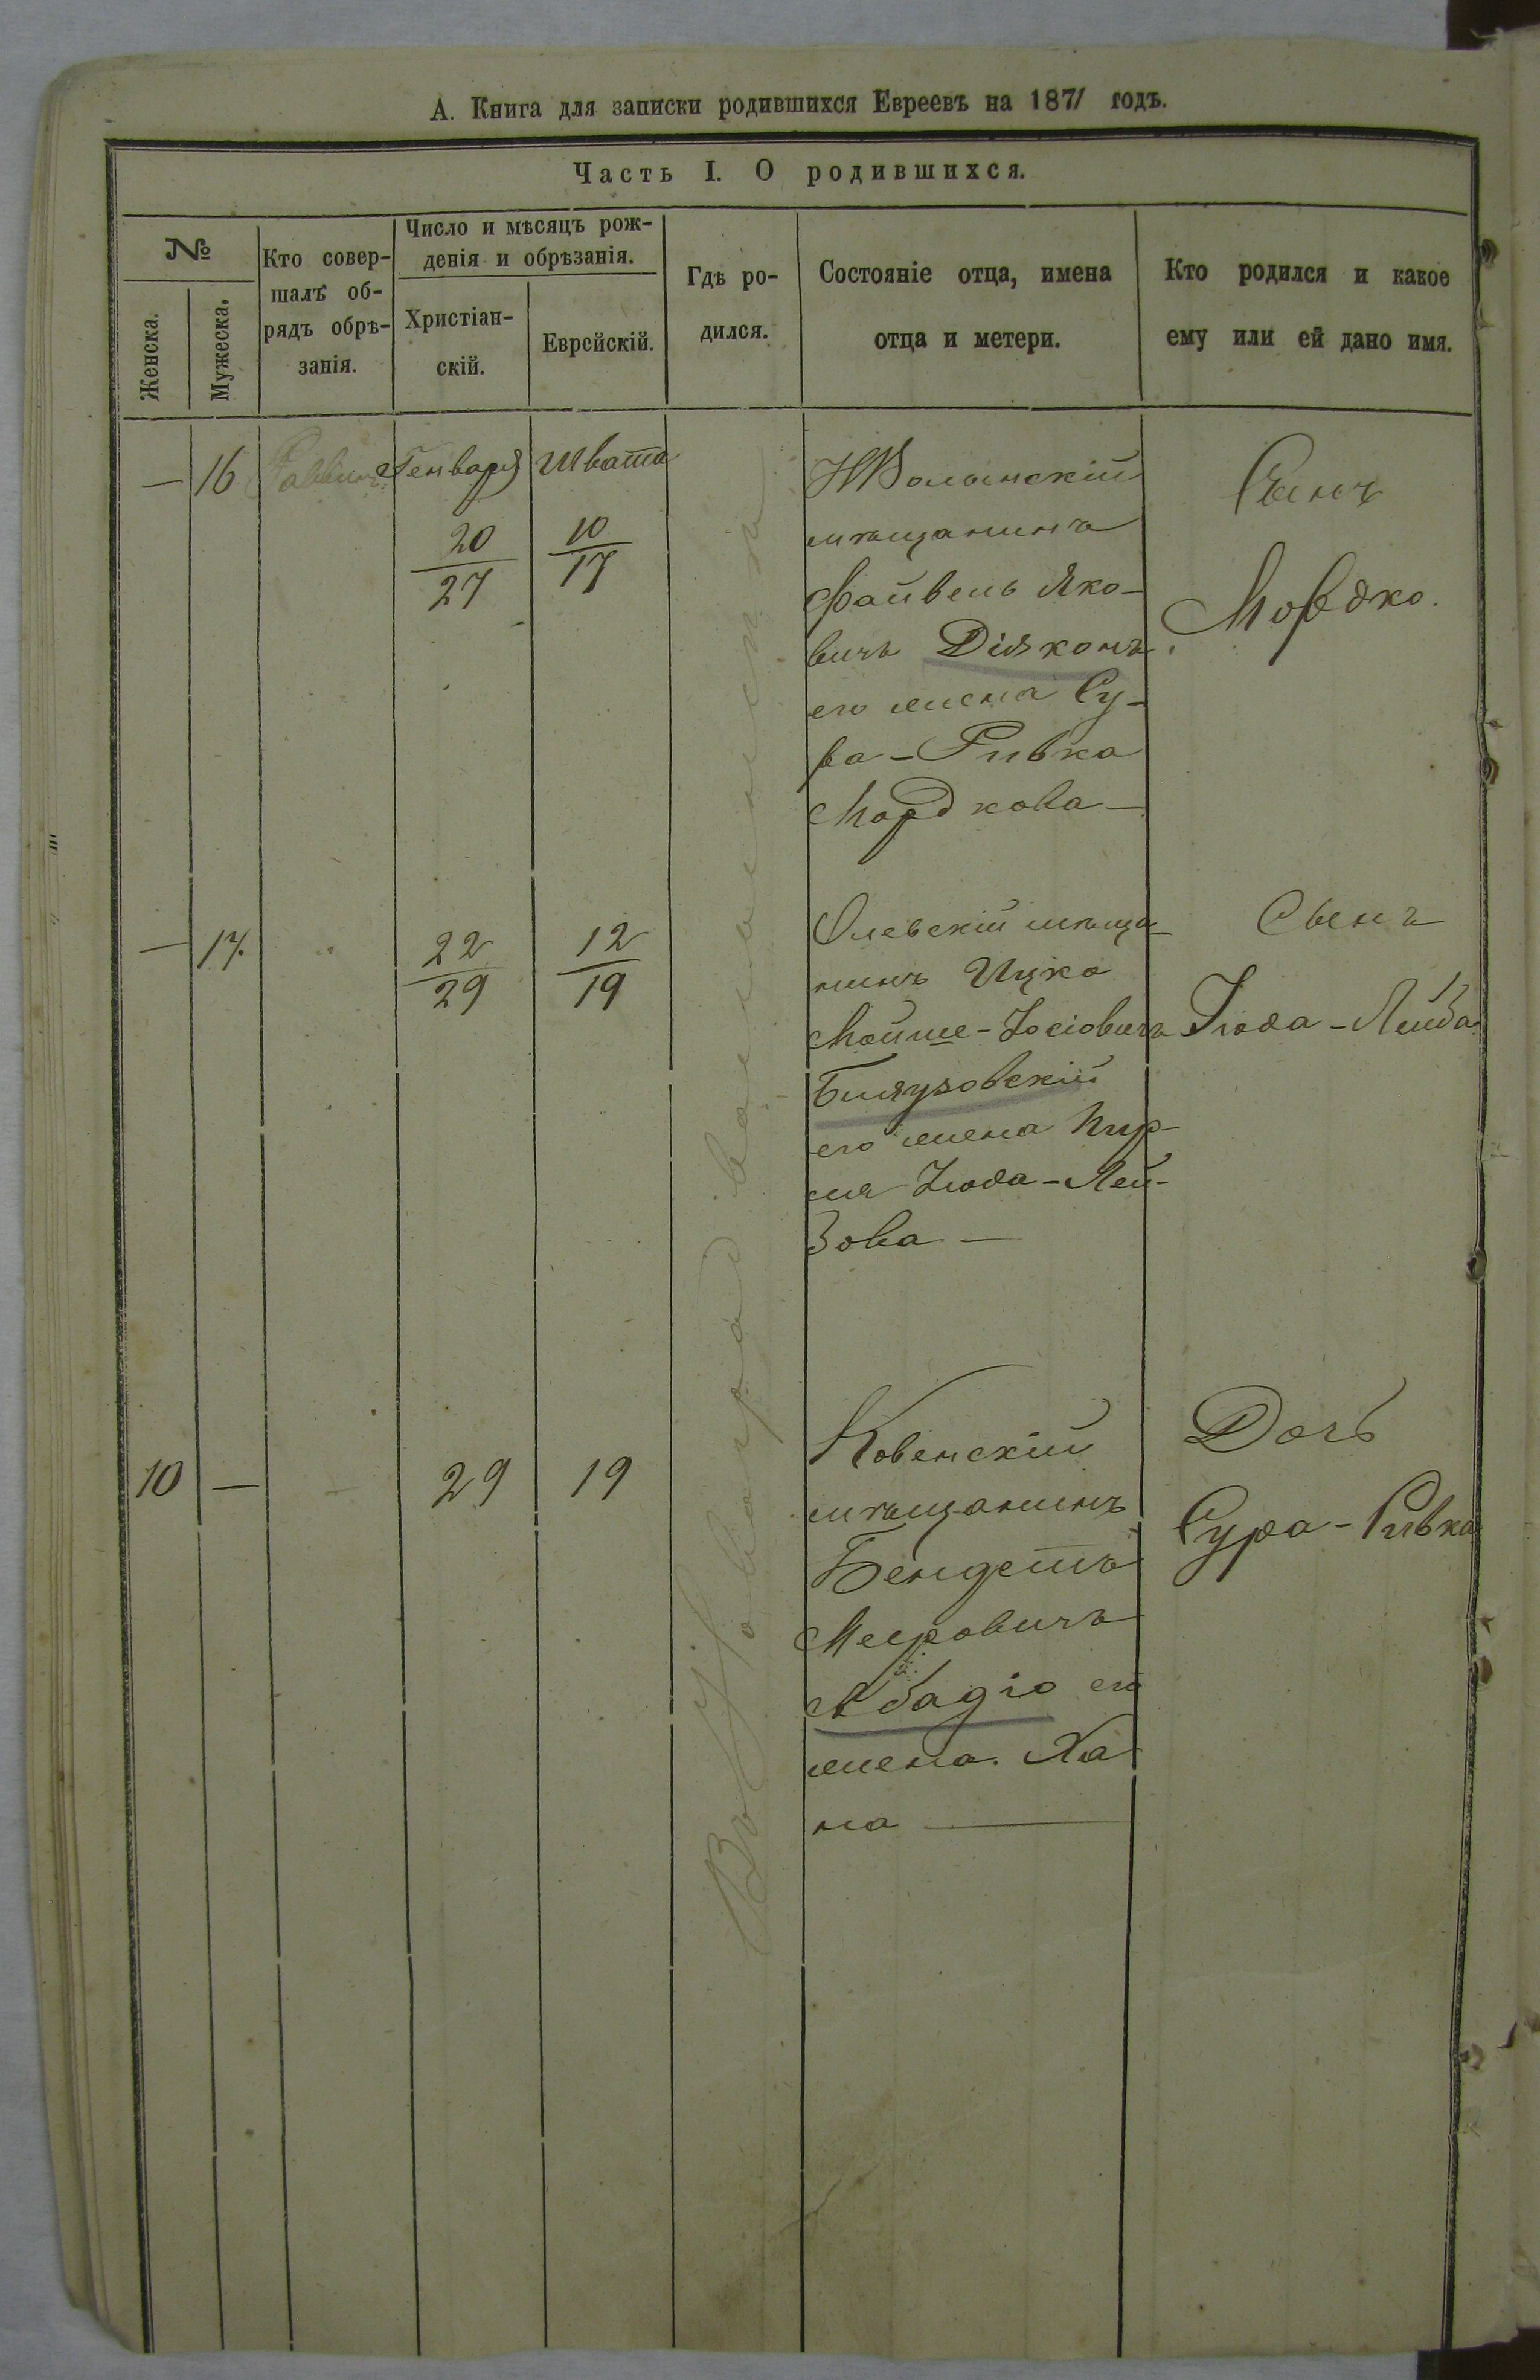 А. Книга для записки родившихся Евреевъ на 1871 годъ.
Часть I. О родившихся.
№
Женска.
Мужеска.
Кто совер-
шалъ об-
рядъ обрѣ-
занія.
Число и мѣсяцъ рож-
денія и обрѣзанія.
Христіан-
скій.
Еврейскій.
Гдѣ ро-
дился.
Состояніе отца, имена
отца и метери.
Кто родился и какое
ему или ей дано имя.
— 16 Раввинъ Генваря Швата
20
27
10
17
НВолынскій
мѣщанинъ
Файвель Яко-
вичъ Діяконъ
его жена Су-
ра-Ривка
Мордкова —
Сынъ
Мордко.
— 17.
22
29
12
19
Олевскій мѣща-
нинъ Ицко
Мойше-Іосіовичъ
его жена
Іюда-Лей-
зова —
Сынъ
Іюда-Лейба
10 —
29
19
Ковенскій
мѣщанинъ
Бендетъ
Меировичъ
его
жена Ха
на —
Дочь
Сура-Ривка